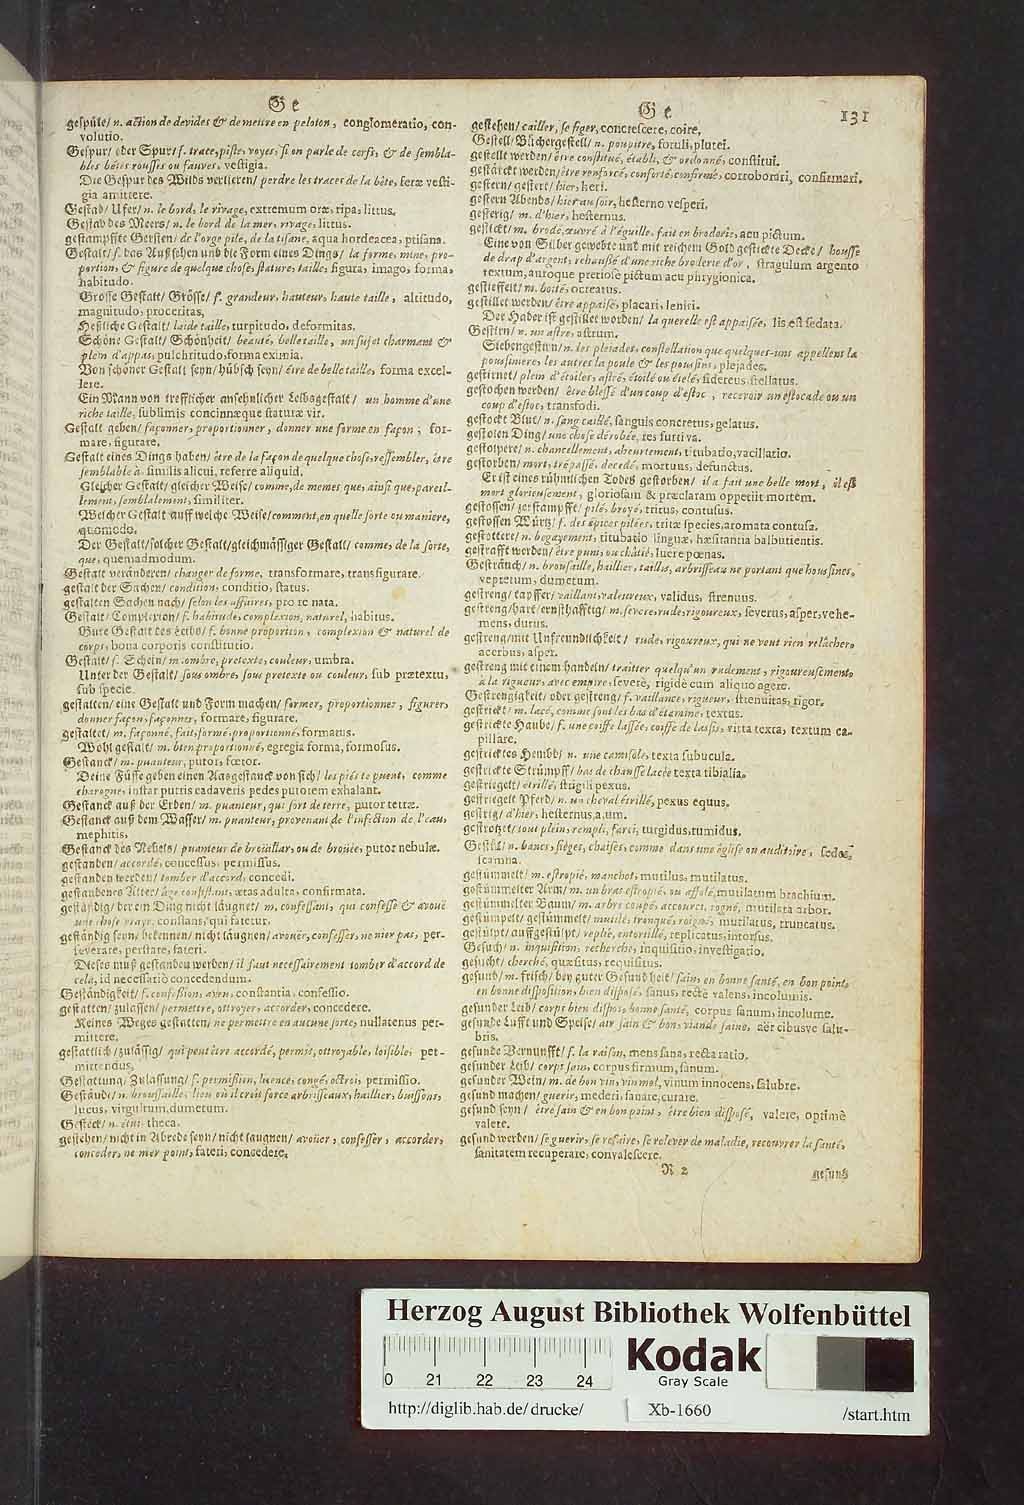 Ge
gespüle/ n. action de devides & de mettre en peloton, conglomeratio, con-
volutio.
Gespur/ oder Spur/ f. trace, piste, voyes, si on parle de cerfs, & de sembla-
bles bêtes rousses ou fauves, vestigia.
Die Gespur des Wilds verlieren/ perdre les traces de la bête, feræ vesti-
gia amittere.
Gestad/ Ufer/ n. le bord, le rivage, extremum oræ, ripa, littus.
Gestad des Meers/ n. le bord de la mer, rivage, littus.
gestampffte Gersten/ de l'orge pilé, de la tisane, aqua hordeacea, ptisana.
Gestalt/ f. das Aussehen und die Form eines Dings/ la forme, mine, pro-
portion, & figure de quelque chose, stature, taille, figura, imago, forma,
habitudo.
Grosse Gestalt/ Grösse/ f. grandeur, hauteur, haute taille, altitudo,
magnitudo, proceritas,
Heßliche Gestalt/ laide taille, turpitudo, deformitas.
Schöne Gestalt/ Schönheit/ beauté, belle taille, un sujet charmant &
plein d'appas, pulchritudo, forma eximia.
Von schöner Gestalt seyn/ hübsch seyn/ être de belle taille, forma excel-
lere.
Ein Mann von trefflicher ansehnlicher Leibsgestalt/ un homme d'une
riche taille, sublimis concinnæque staturæ vir.
Gestalt geben/ façonner, proportionner, donner une forme en façon, for-
mare, figurare.
Gestalt eines Dings haben/ être de la façon de quelque chose, ressembler, être
semblable à. similis alicui, referre aliquid.
Gleicher Gestalt/ gleicher Weise/ comme, de memes que, ainsi que, pareil-
lement, semblablement, similiter.
Welcher Gestalt auff welche Weise/ comment, en quelle sorte ou maniere,
quomodo.
Der Gestalt/ solcher Gestalt/ gleichmässiger Gestalt/ comme, de la sorte,
que, quemadmodum.
Gestalt veränderen/ changer de forme, transformare, transfigurare.
gestalt der Sachen/ condition, conditio, status.
gestalten Sachen nach/ selon les affaires, pro re nata.
Gestalt/ Complexion/ f. habitude, complexion, naturel, habitus.
Gute Gestalt des Leibs/ f. bonne proportion, complexion & naturel de
corps, bona corporis constitutio.
Gestalt/ f. Schein/ m. ombre, pretexte, couleur, umbra.
Unter der Gestalt/ sous ombre, sous pretexte ou couleur, sub prætextu,
sub specie.
gestalten/ eine Gestalt und Form machen/ former, proportionner, figurer,
donner façon, façonner, formare, figurare.
gestaltet/ m. façonné, fait, formé, proportionné, formatus.
Wohl gestalt/ m. bien proportionné, egregia forma, formosus.
Gestanck/ m. puanteur, putor, fœtor.
Deine Füsse geben einen Aasgestanck von sich/ les piés te puent, comme
charogne, instar putris cadaveris pedes putorem exhalant.
Gestanck auß der Erden/ m. puanteur, qui sort de terre, putor terræ.
Gestanck auß dem Wasser/ m. puanteur, provenant de l'infection de l'eau,
mephitis,
Gestanck des Nebels/ puanteur de broüillar, ou de broüée, putor nebulæ.
gestanden/ accordé, concessus, permissus.
gestanden werden/ tomber d'accord, concedi.
gestandenes Alter/ âge consistant, ætas adulta, confirmata.
geständig/ der ein Ding nicht läugnet/ m. confessant, qui confesse & avouë
une chose vraye, constans, qui fatetur.
geständig seyn/ bekennen/ nicht läugnen/ avouër, confesser, ne nier pas, per-
severare, perstare, fateri.
Dieses muß gestanden werden/ il faut necessairement tomber d'accord de
cela, id necessariò concedendum.
Geständigkeit/ f. confession, aveu, constantia, confessio.
gestatten/ zulassen/ permettre, ottroyer, accorder, concedere.
Keines Weges gestatten/ ne permettre en aucune sorte, nullatenus per-
mittere.
gestattlich/ zulässig/ qui peut être accordé, permis, ottroyable, loisible, per-
mittendus,
Gestattung/ Zulassung/ f. permission, licence, congé, octroi, permissio.
Gestäude/ n. broussaille, lieu où il croît force arbrisseaux, hallier, buissons,
lucus, virgultum, dumetum.
Gesteck/ n. étui, theca.
gestehen/ nicht in Abrede seyn/ nicht laugnen/ avoüer, confesser, accorder,
conceder, ne nier point, fateri, concedere.
Ge
131
gestehen/ cailler, se figer, concrescere, coire,
Gestell/ Büchergestell/ n. poupitre, foruli, plutei.
gestelle werden/ être constitué, établi, & ordonné, constitui.
gestärckt werden/ être renforcé, conforté, confirmé, corroborari, confirmari.
gestern/ gestert/ hier, heri.
gestern Abends/ hier au soir, hesterno vesperi.
gesterig/ m. d'hier, hesternus.
gestickt/ m. brodé, œuvré à l'éguille, fait en broderie, acu pictum.
Eine von Silber gewebte und mit reichem Gold gestickte Decke/ housse
de drap d'argent, rehaussé d'une riche broderie d'or, stragulum argento
textum, auroque pretiosè pictum acu phrygionica.
gestieffelt/ m. botté, ocreatus.
gestillet werden/ être appaisé, placari, leniri.
Der Hader ist gestillet worden/ la querelle est appaisée, lis est sedata.
Gestirn/ n. un astre, astrum.
Siebengestirn/ n. les pleiades, constellation que quelques-uns appellent la
poussiniere, les autres la poule & les poussins, plejades.
gestirnet/ plein d'étoiles, astré, étoilé ou ételé, sidereus, stellatus.
gestochen werden/ être blessé d'un coup d'estoc, recevoir un estocade ou un
coup d'estoc, transfodi.
gestockt Blut/ n. sang caillé, sanguis concretus, gelatus.
gestolen Ding/ une chose dérobée, res furtiva.
gestolpere/ n. chancellement, aheurtement, titubatio, vacillatio.
gestorben/ mort, trépassé, decedé, mortuus, defunctus.
Er ist eines rühmlichen Todes gestorben/ il a fait une belle mort, il est
mort glorieusement, gloriosam & præclaram oppetiit mortem.
gestossen/ zerstampfft/ pilé, broyé, tritus, contusus.
gestossen Würtz/ f. des épices pilées, tritæ species, aromata contusa.
gestottere/ n. begayement, titubatio linguæ, hæsitantia balbutientis.
gestrafft werden/ être puni, ou châtié, luere pœnas.
Gesträuch/ n. broussaille, hallier, taillis, arbrisseau ne portant que houssines,
vepretum, dumetum.
gestreng/ tapffer/ vaillant, valeureux, validus, strenuus.
gestreng/ hart/ ernsthafftig/ m. severe, rude, rigoureux, severus, asper, vehe-
mens, durus.
gestreng/ mit Unfreundlichkeit/ rude, rigoureux, qui ne veut rien relâcher,
acerbus, asper.
gestreng mit einem handeln/ traitter quelqu'un rudement, rigoureusement,
à la rigueur, avec empire, severè, rigidè cum aliquo agere.
Gestrengigkeit/ oder gestreng/ f. vaillance, rigueur, strenuitas, rigor.
gestrickt/ m. lacé, comme sont les bas d'étamine, textus.
gestrickte Haube/ f. une coiffe lassée, coiffe de lassis, vitta texta, textum ca-
pillare.
gestricktes Hembd/ n. une camisole, texta subucula.
gestrickte Strümpff/ bas de chausse lacée texta tibialia.
gestriegelt/ étrillé, strigili pexus.
gestriegelt Pferd/ n. un cheval étrillé, pexus equus.
gestrig/ d'hier, hesternus, a, um.
gestrotzet/ tout plein, rempli, farci, turgidus, tumidus.
Gestül/ n. bancs, siéges, chaises, comme dans une église ou auditoire, sedes,
scamna.
gestümmelt/ m. estropié, manchot, mutilus, mutilatus.
gestümmelter Arm/ m. un bras estropié, ou affolé, mutilatum brachium.
gestümmelter Baum/ m. arbre coupé, accourci, rogné, mutilata arbor.
gestümpelt/ gestümmelt/ mutilé, tronqué, roigné, mutilatus, truncatus.
gestülpt/ auffgestülpt/ replié, entortillé, replicatus, intorsus.
Gesuch/ n. inquisition, recherche, inquisitio, investigatio.
gesucht/ cherché, quæsitus, requisitus.
gesund/ m. frisch/ bey guter Gesundheit/ sain, en bonne santé, en bon point,
en bonne disposition, bien disposé, sanus, rectè valens, incolumis.
gesunder Leib/ corps bien dispos, bonne santé, corpus sanum, incolume.
gesunde Lufft und Speise/ air sain & bon, viande saine, aër cibusve salu-
bris.
gesunde Vernunfft/ f. la raison, mens sana, recta ratio.
gesunder Leib/ corps sain, corpus firmum, sanum.
gesunder Wein/ m. de bon vin, vin mol, vinum innocens, salubre.
gesund machen/ guerir, mederi, sanare, curare.
gesund seyn/ être sain & en bon point, être bien disposé, valere, optimè
valere.
gesund werden/ se guerir, se refaire, se relever de maladie, recouvrer la santé,
sanitatem recuperare, convalescere.
R 2
gesund
Herzog August Bibliothek Wolfenbüttel
Kodak
Gray Scale
0 21 22 23 24
http://diglib.hab.de/drucke/
Xb-1660
/start.htm